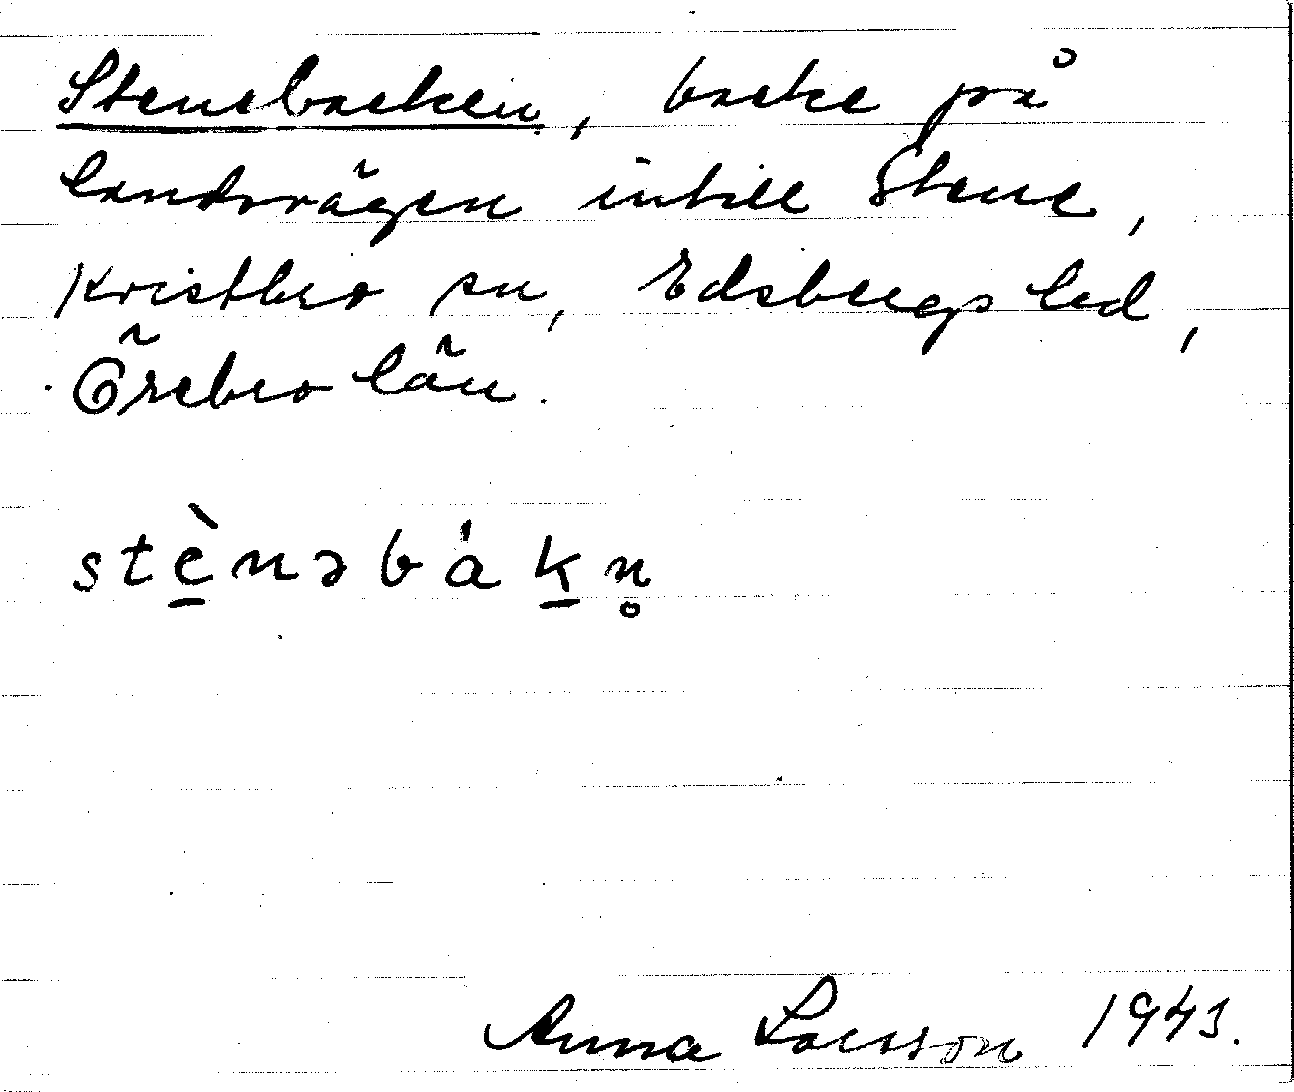 Stenebacken, backe på
landsvägen intill Stene,
Kvistbro sn, Edsbergs hd,
Örebro län.
stè̱nəbáḵn̥
Anna Larsson 1943.